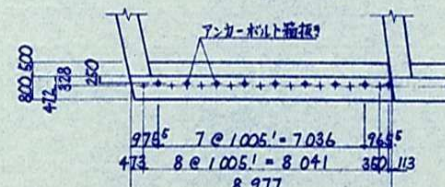 アンカーボルト箱抜き
800 500
472 328
250
975⁵ 7 @ 1.005.¹ = 7.036 965⁵
473 8 @ 1.005.¹ = 8.041 350 113
8.977